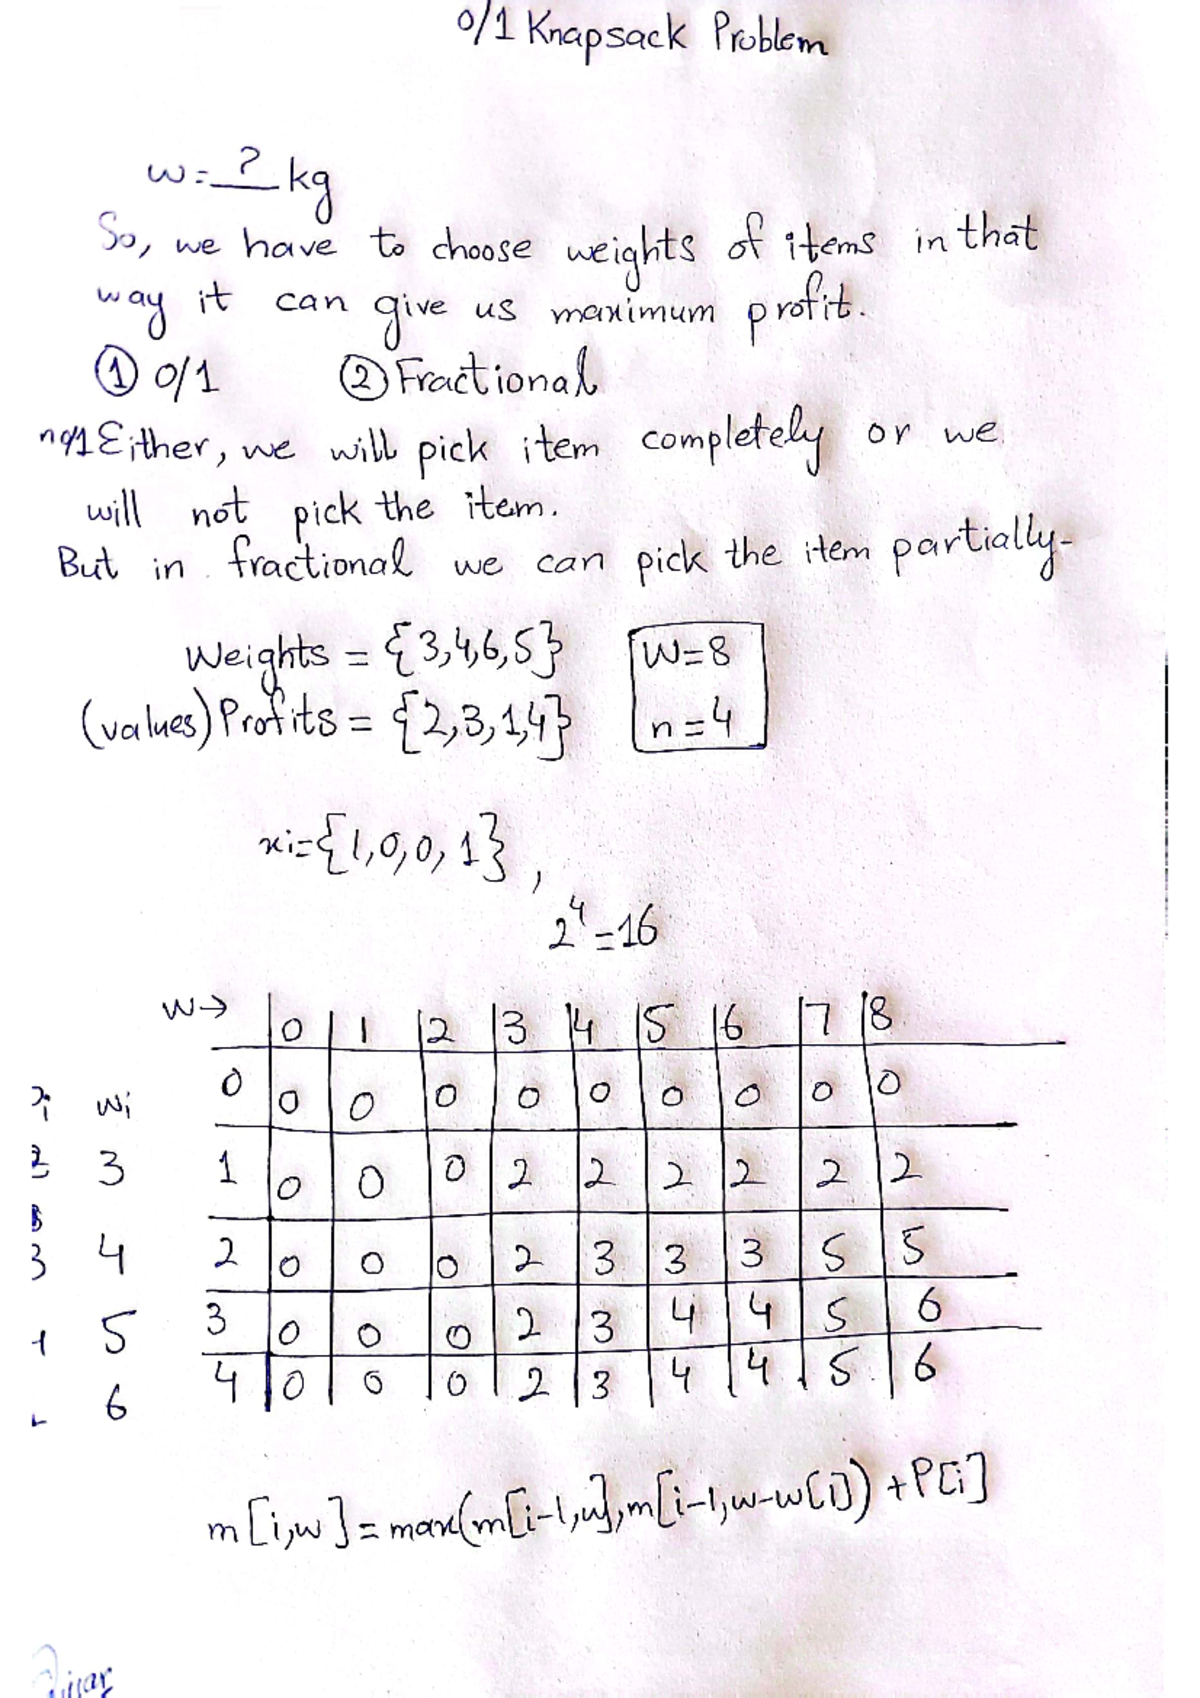 0/1 Knapsack Problem
w = ? kg
So, we have to choose weights of items in that
way it can give us maximum profit.
① 0/1 ② Fractional
Either, we will pick item completely or we
will not pick the item.
But in fractional we can pick the item partially-
Weights = {3,4,6,5} W=8
(values) Profits = {2,3,1,4} n=4
xi={1,0,0,1},
2^4=16
W→ 0 1 2 3 4 5 6 7 8
wi 0 0 0 0 0 0 0 0 0 0
2 3 1 0 0 0 2 2 2 2 2 2
3 4 2 0 0 0 2 3 3 3 5 5
1 5 3 0 0 0 2 3 4 4 5 6
6 4 0 0 0 2 3 4 4 5 6
m[i,w]=max(m[i-1,w],m[i-1,w-w[i])+P[i]